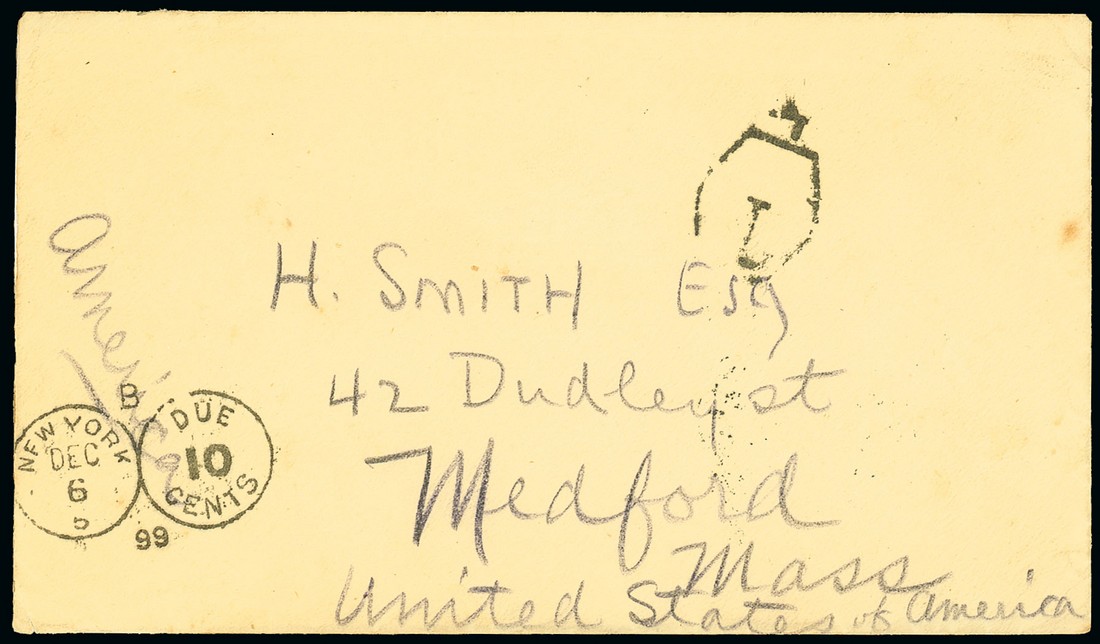 T
H. SMITH Esq
42 Dudley st
Medford
Mass
United States of America
America
B
NEW YORK
DEC
6
5
99
DUE
10
CENTS